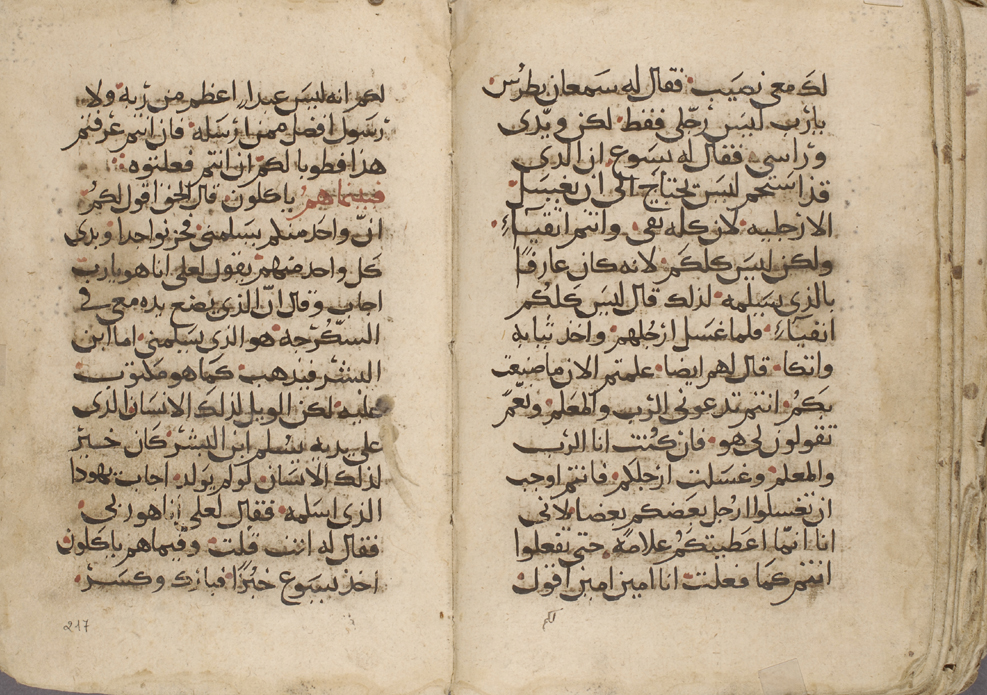 لك معي نصيب فقال له سمعان بطرس
يارب ليس رجلي فقط لكن ويدي
وراسي فقال له يسوع ان الذي
قد استحم ليس يحتاج الى ان يغسل
الا رجليه لان كله نقي وانتم انقياء
ولكن ليس كلكم لانه كان عارفا
بالذي يسلمه لذلك قال ليس كلكم
انقياء فلما غسل ارجلهم واخذ ثيابه
واتكا قال لهم ايضا علمتم الان ما صنعت
بكم انتم تدعوني الرب والمعلم ونعم
تقولون لي هو فان كنت انا الرب
والمعلم وغسلت ارجلكم فانتم اوجب
ان تغسلوا ارجل بعضكم بعضا لاني
انا انما اعطيتكم علامة حتى تفعلوا
انتم كما فعلت انا امين امين اقول
لكم
لكم انه ليس عبدا اعظم من ربه ولا
رسول افضل ممن ارسله فان انتم عرفتم
هذا فطوبا لكم ان انتم فعلتوه
فبينما هم ياكلون قال الحق اقول لكم
ان واحد منكم يسلمني فحزنوا جدا وبدى
كل واحد منهم يقول لعلي انا هو يارب
اجاب وقال ان الذي يضع يده معي في
السكرجة هو الذي يسلمني اما ابن
البشر فيذهب كما هو مكتوب
عليه لكن الويل لذلك الانسان الذي
على يديه يسلم ابن البشر كان خير
لذلك الانسان لو لم يولد اجاب يهودا
الذي اسلمه فقال لعلي انا هو ربي
فقال له انت قلت وفيما هم ياكلون
اخذ يسوع خبزا فبارك وكسر
217